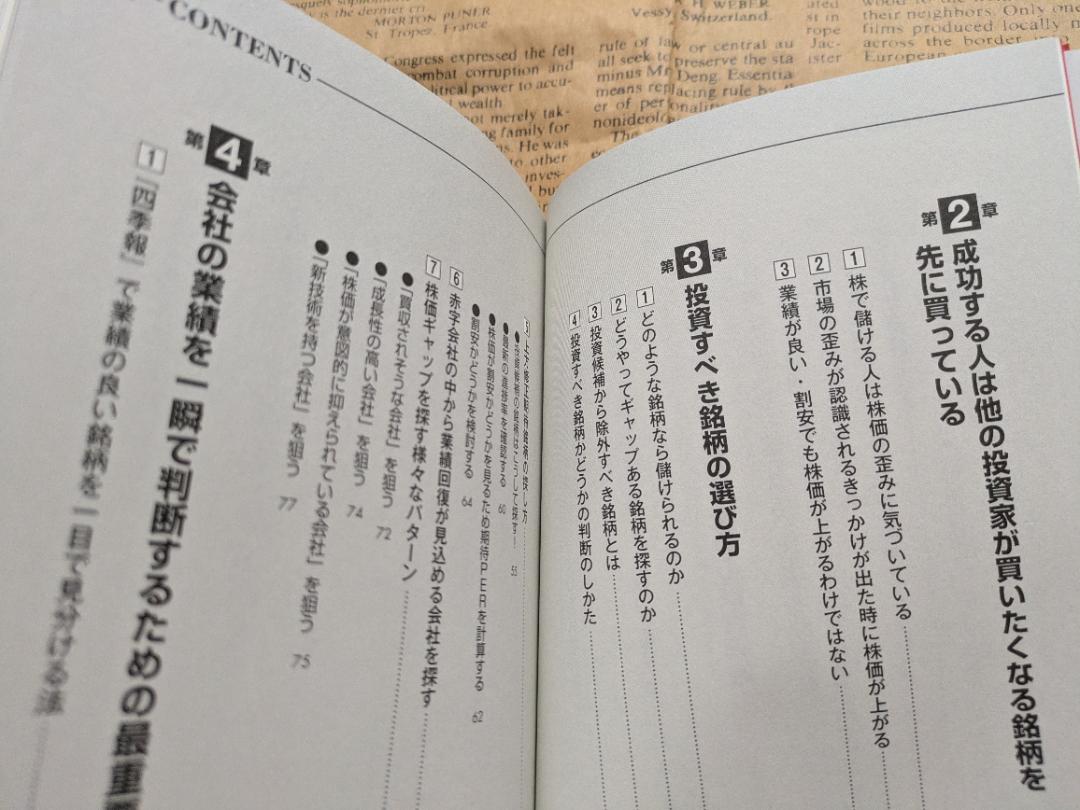 CONTENTS
第2章 成功する人は他の投資家が買いたくなる銘柄を
先に買っている
1 株で儲ける人は株価の歪みに気づいている
2 市場の歪みが認識されるきっかけが出た時に株価が上がる
3 業績が良い・割安でも株価が上がるわけではない
第3章 投資すべき銘柄の選び方
1 どのような銘柄なら儲けられるのか
2 どうやってギャップある銘柄を探すのか
3 投資候補から除外すべき銘柄とは
4 投資すべき銘柄かどうかの判断のしかた
5
●投資候補の銘柄はこうして探す! 55
●最新の進捗率を確認する 60
●株価が割安かどうかを見るため期待PERを計算する 62
●割安かどうかを検討する 64
6 赤字会社の中から業績回復が見込める会社を探す
7 株価ギャップを探す様々なパターン
●「買収されそうな会社」を狙う 72
●「成長性の高い会社」を狙う 74
●「株価が意図的に抑えられている会社」を狙う 75
●「新技術を持つ会社」を狙う 77
第4章 会社の業績を一瞬で判断するための最重
1 『四季報』で業績の良い銘柄を一目で見分ける法
MORTON PUNER
St. Tropez, France
H. WEBER
Vessy, Switzerland.
Congress expressed the felt
combat corruption and
political power to accu-
wealth
not merely tak-
family for
He was
to other
inves-
rule of law or central au
all seek to preserve the sta
minus Mr. Deng. Essentia
means replacing rule by
er of personality
nonideolo
The
ated
st in
rope
Jac-
ister
wood to the
their neighbors. Only one
films produced locally
across the border
European